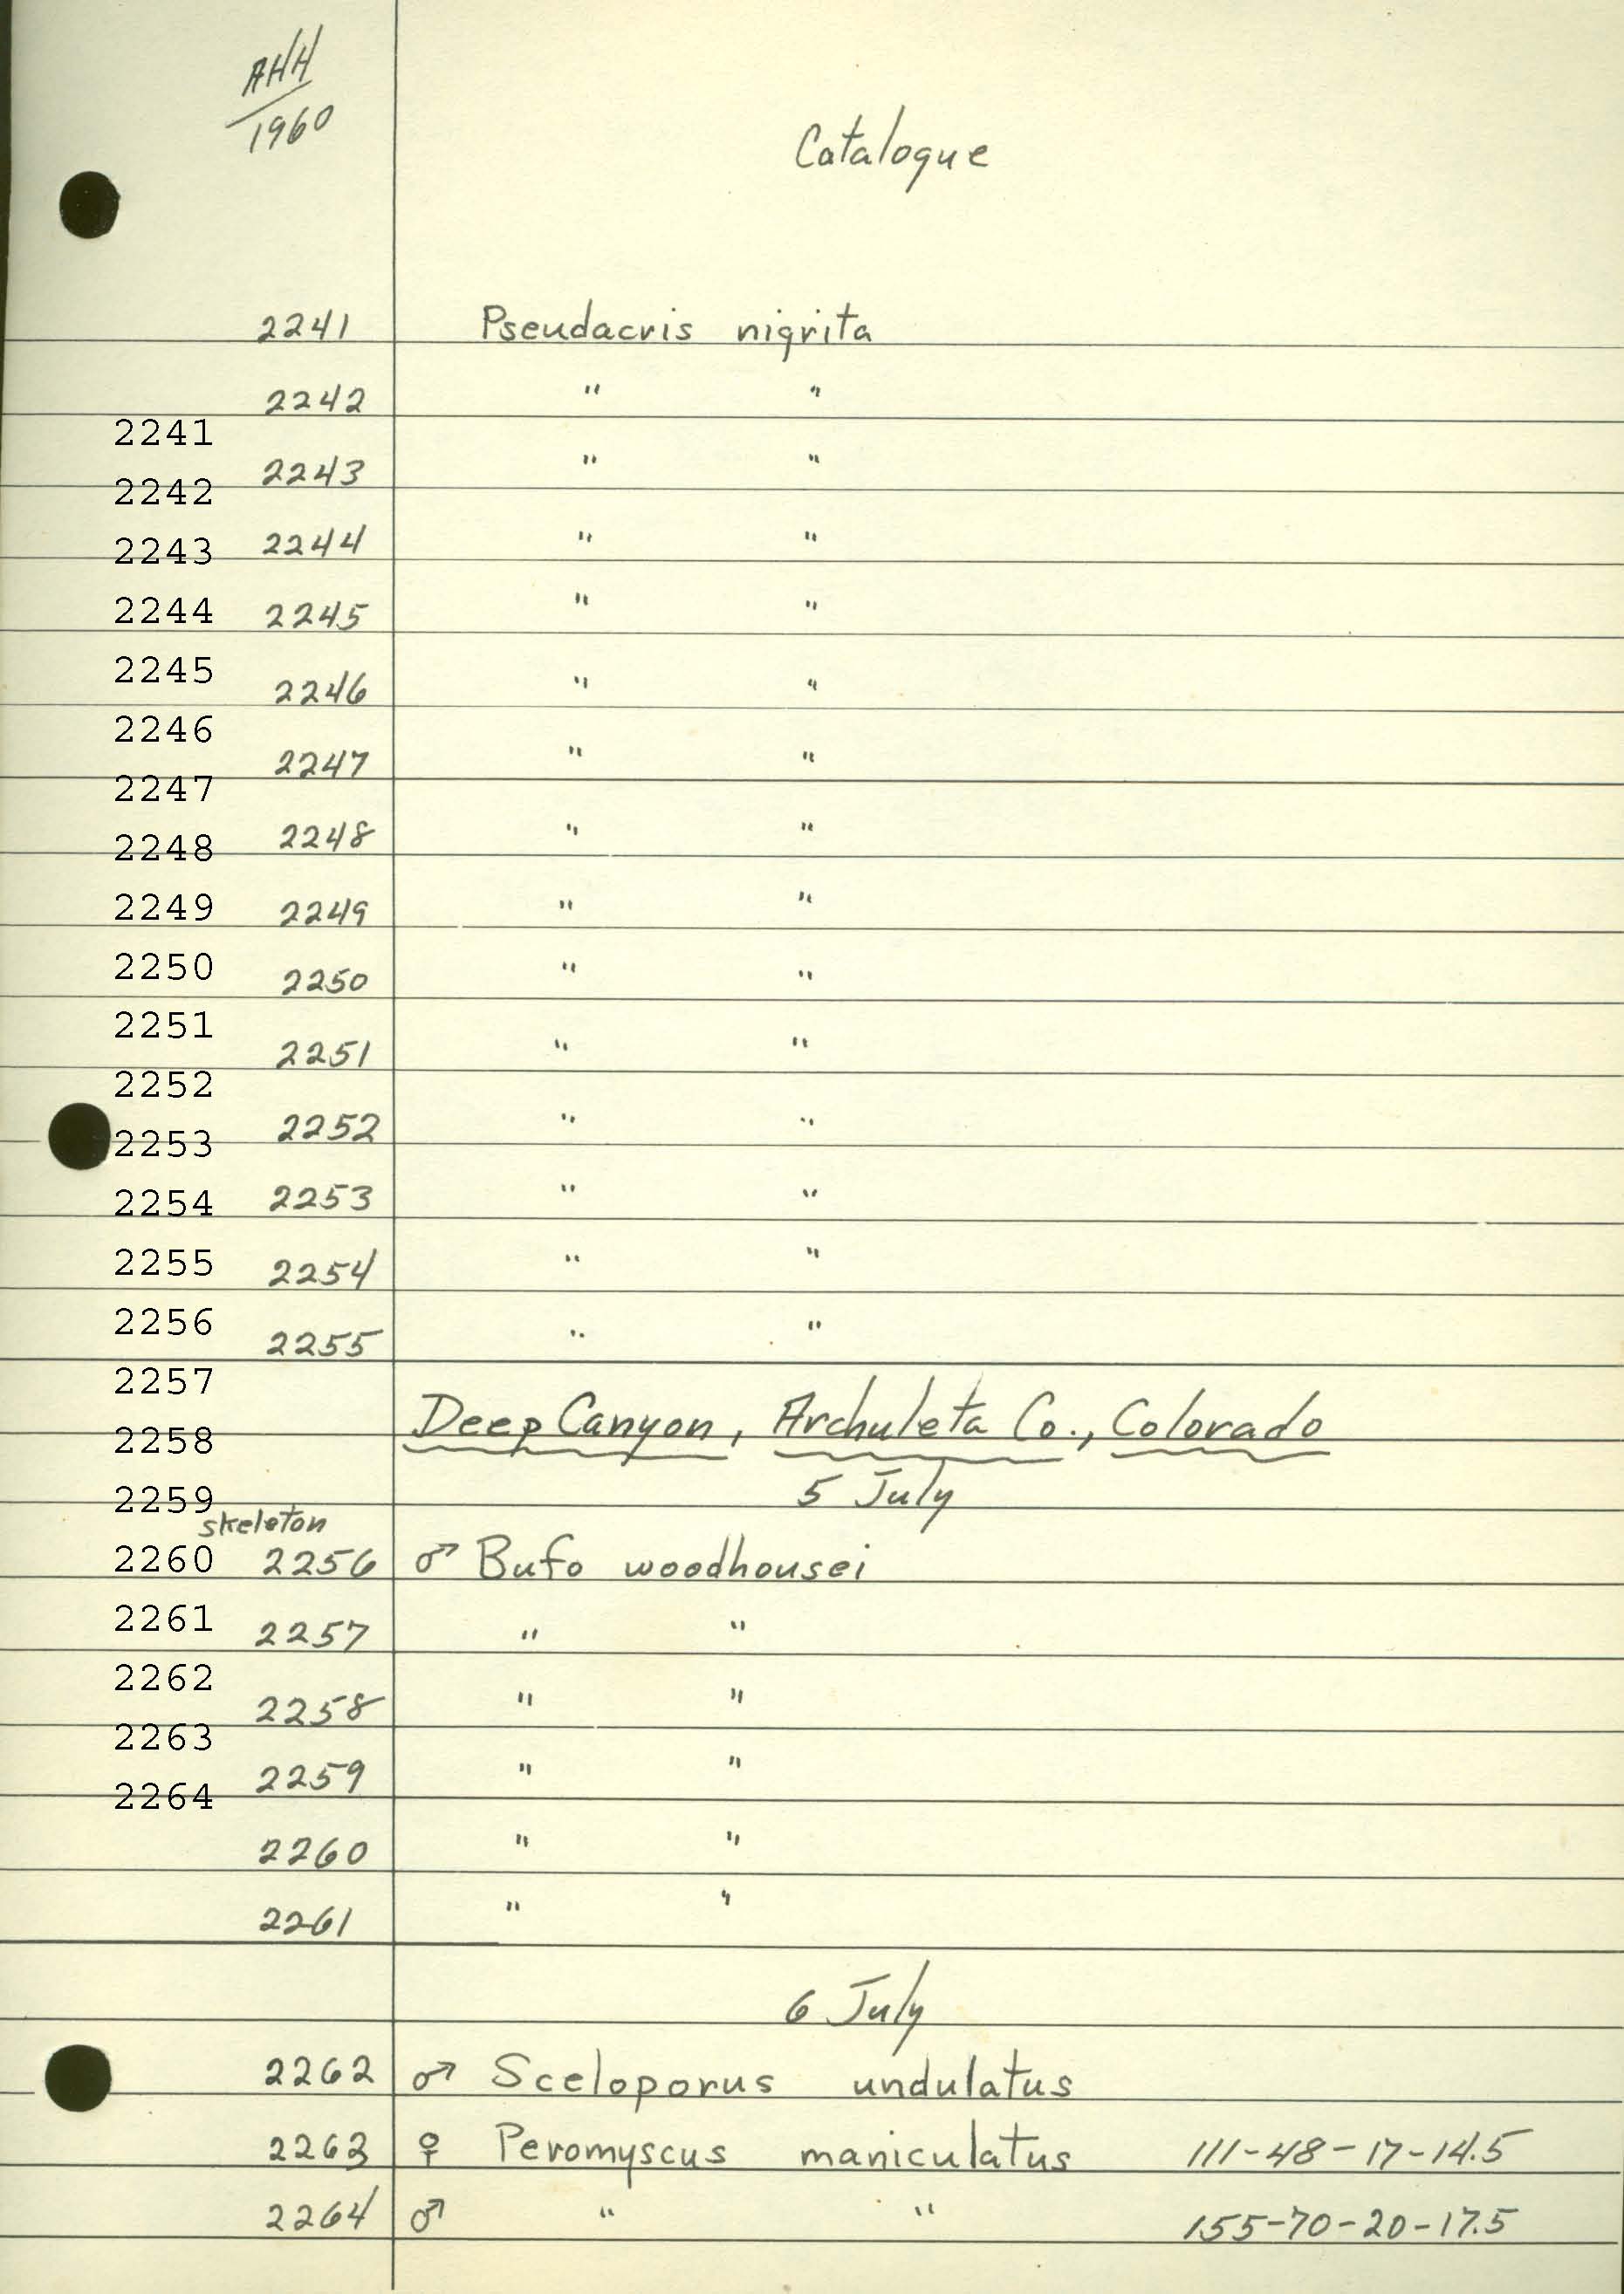 AHH
1960
Catalogue
2241 Pseudacris nigrita
2242 " "
2241
2243 " "
2242
2243 2244 " "
2244 2245 " "
2245
2246 " "
2246
2247 " "
2247
2248 2248 " "
2249 2249 " "
2250 2250 " "
2251
2251 " "
2252
2253 2252 " "
2254 2253 " "
2255 2254 " "
2256
2255 " "
2257
Deep Canyon, Archuleta Co., Colorado
2258
5 July
2259
skeleton
2260 2256 ♂ Bufo woodhousei
2261 2257 " "
2262
2258 " "
2263
2259 " "
2264
2260 " "
2261 " "
6 July
2262 ♂ Sceloporus undulatus
2263 ♀ Peromyscus maniculatus 111-48-17-14.5
2264 ♂ " " 155-70-20-17.5